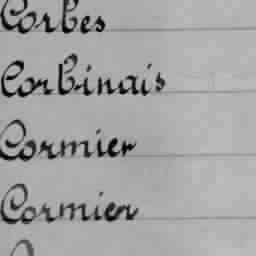 Corbes
Corbinais
Cormier
Cormier